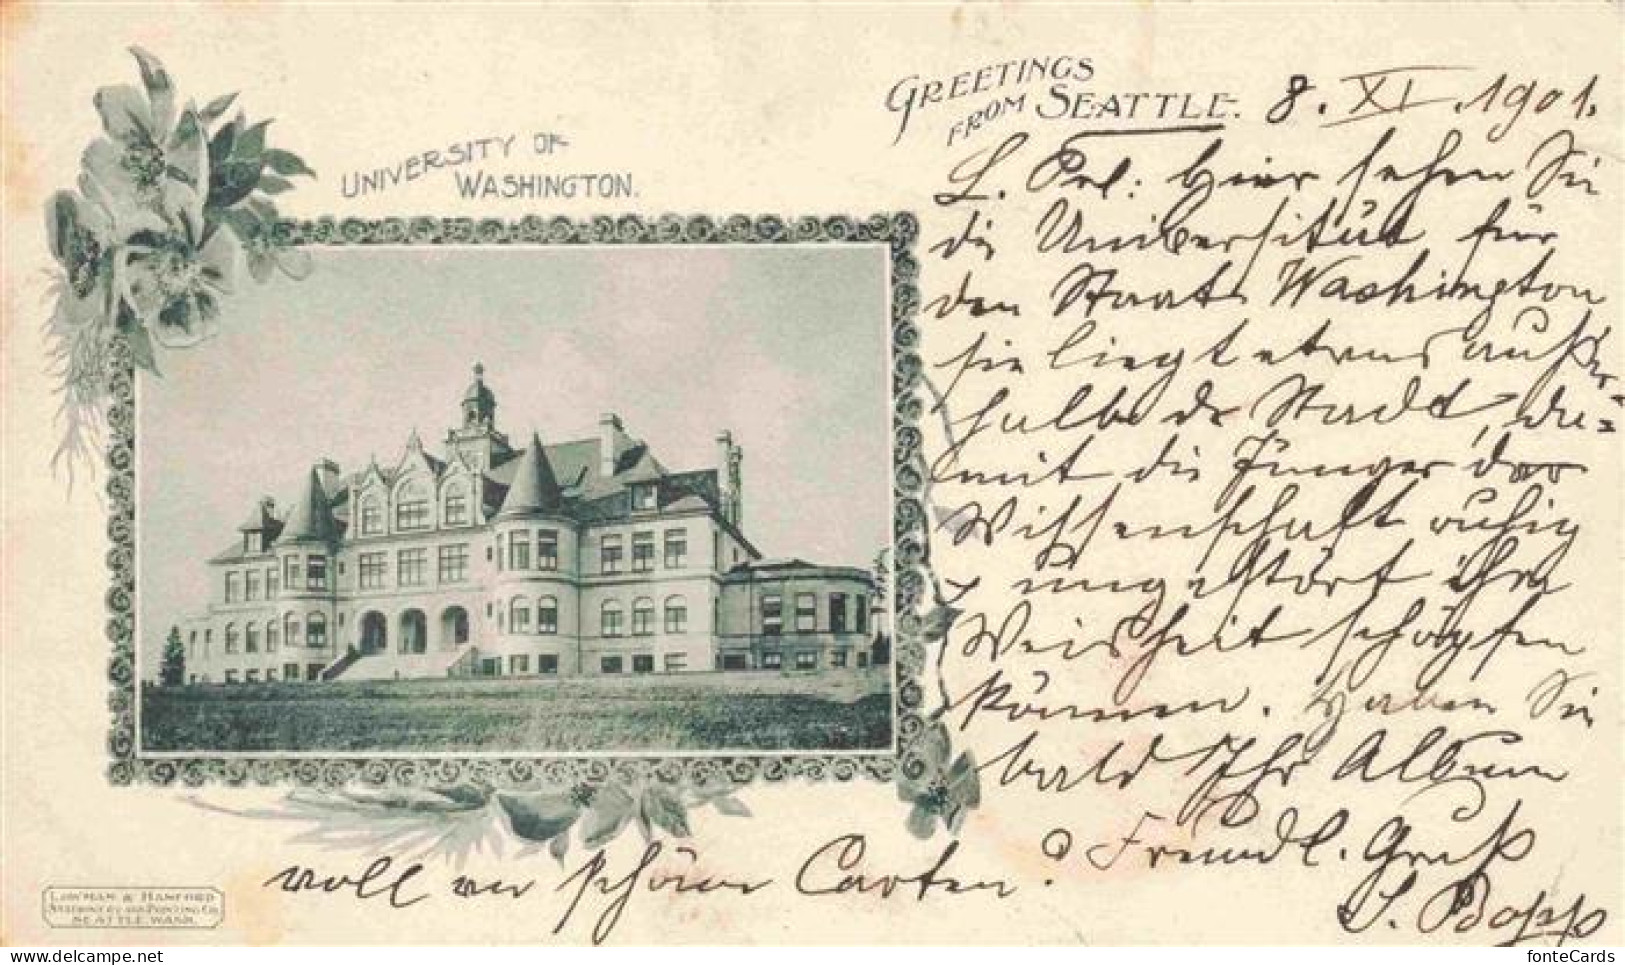 GREETINGS
FROM SEATTLE. 8. XI. 1901.
UNIVERSITY OF
WASHINGTON.
hier sehen Sie
die Universität für
den Staat Washington
sie liegt etwas außer-
halb der Stadt, da=
mit die Jünger der
Wissenschaft ruhig
ungestört ihre
Weisheit schöpfen
können. Haben Sie
bald Ihr Album
voll von schönen Carten? Freundl. Gruß
S. Bopp
LOWMAN & HANFORD
STATIONERY AND PRINTING CO.
SEATTLE, WASH.
www.delcampe.net
fonteCards